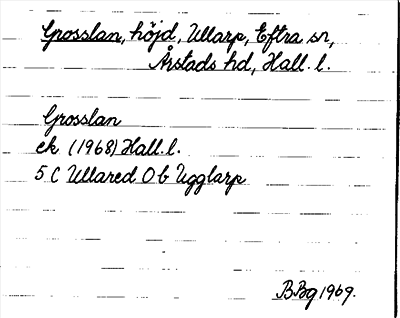 Grosslan, höjd, Ullarp, Eftra sn,
Årstads hd, Hall. l.
Grosslan
ek (1968) Hall. l.
5 C Ullared 0 b Ugglarp
BBg 1969.